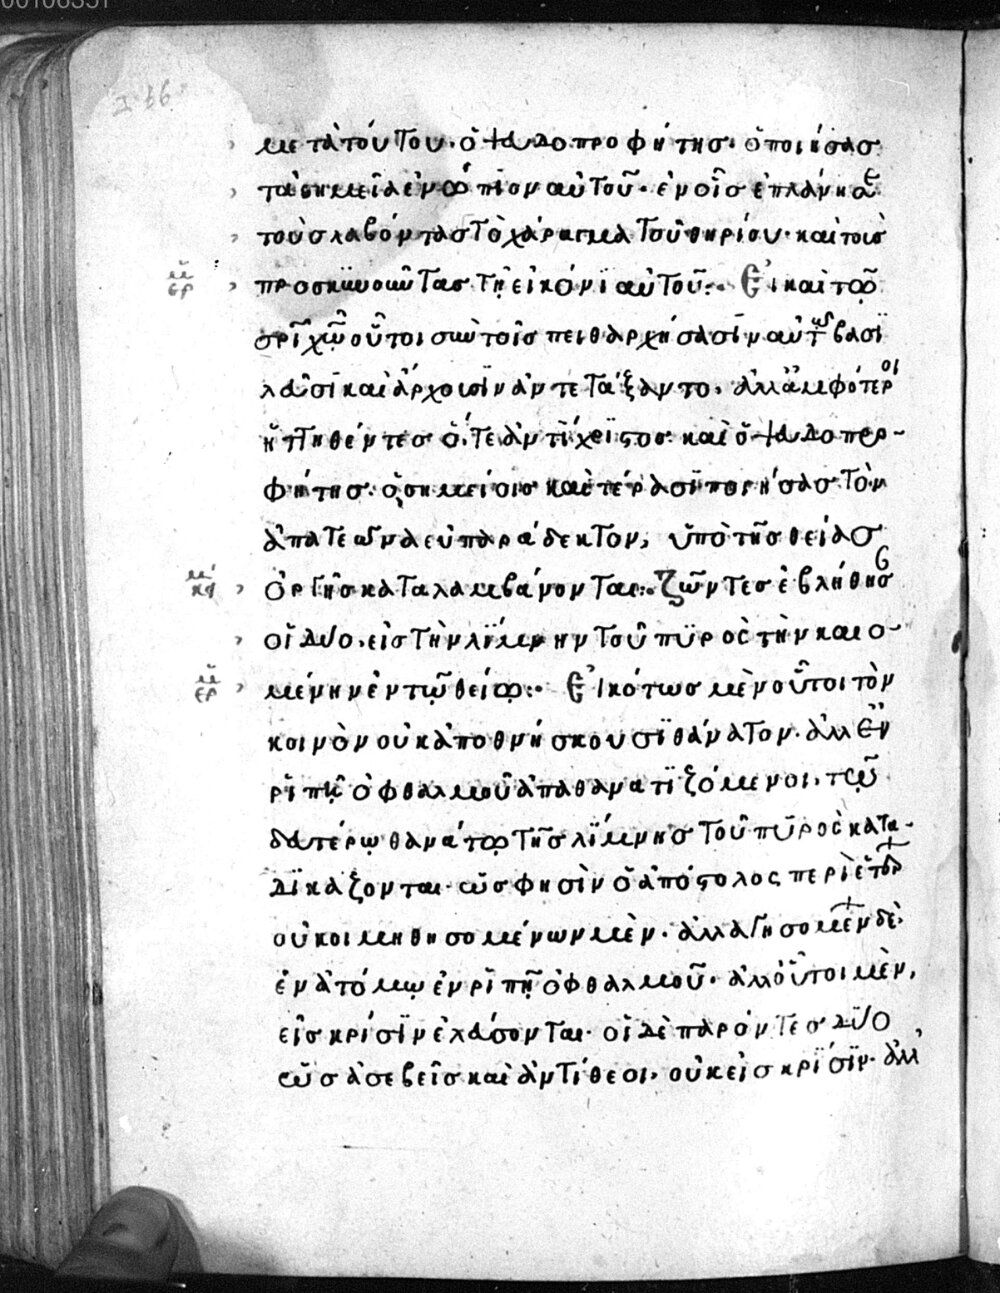 μετὰ τούτου ὁ ψευδοπροφήτης· ὁ ποιήσας
τὰ σημεῖα ἐνώπιον αὐτοῦ· ἐν οἷς ἐπλάνησε
τοὺς λαβόντας τὸ χάραγμα τοῦ θηρίου· καὶ τοὺς
προσκυνοῦντας τῇ εἰκόνι αὐτοῦ:· Εἰ καὶ τῷ
χῷ οὗτοι σὺν τοῖς πειθαρχήσασιν αὐτ βασι
λεῦσι καὶ ἄρχουσιν ἀντετάξαντο· ἀλλ' ἀμφότεροι
ἡττηθέντες ὅ,τε ἀντίχριστος καὶ ὁ ψευδοπρο-
φήτης· ὁ σημείοις καὶ τέρασι ποιήσας τὸν
ἀπατεῶνα εὐπαράδεκτον, ὑπὸ τῆς θείας
ὀργῆς καταλαμβάνονται:· Ζῶντες ἐβλήθησ
οἱ δύο· εἰς τὴν λίμνην τοῦ πυρὸς τὴν καιο-
μένην ἐν τῷ θείῳ:· Εἰκότως μὲν οὗτοι τὸν
κοινὸν οὐκ ἀποθνήσκουσι θάνατον· ἀλλ' ἐν
ριπῇ ὀφθαλμοῦ ἀπαθανατιζόμενοι, τῷ
δευτέρῳ θανάτῳ τῆς λίμνης τοῦ πυρὸς κατα-
δικάζονται· ὥς φησὶν ὁ ἀπόστολος περὶ
οὐ κοιμηθησομένων μὲν· ἀλλαγησομένων δὲ·
ἐν ἀτόμῳ ἐν ριπῇ ὀφθαλμοῦ· ἀλλ' οὗτοι μὲν,
εἰς κρίσιν ἐλάσονται· οἱ δὲ παρόντες δύο
ὡς ἀσεβεῖς καὶ ἀντίθεοι· οὐκ εἰς κρίσιν· ἀλλ'